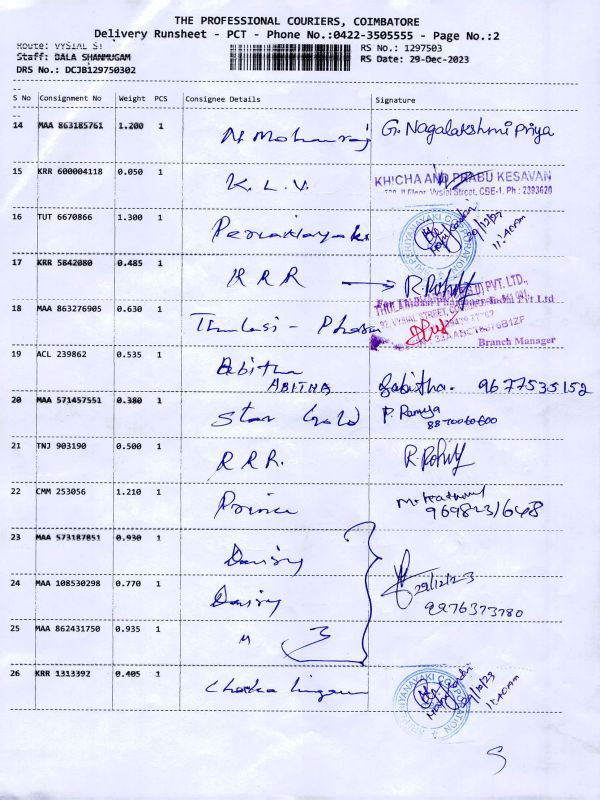 THE PROFESSIONAL COURIERS, COIMBATORE
Delivery Runsheet - PCT - Phone No.:0422-3505555 - Page No.:2
Route: VYSIAL ST
RS No.: 1297503
Staff: DALA SHANMUGAM
RS Date: 29-Dec-2023
DRS No.: DCJB129750302
S No Consignment No Weight PCS Consignee Details Signature
14 MAA 863185761 1.200 1 N. Mohanraj G. Nagalakshmi Priya
15 KRR 600004118 0.050 1 K. L. V. KHICHA AND PRABU KESAVAN
II Floor, Vysial Street, CBE-1. Ph : 2393620
16 TUT 6670866 1.300 1 Perianayaki
29/12/23
11:40am
17 KRR 5842080 0.485 1 R R R → R. Rohit
18 MAA 863276905 0.630 1 Thulasi - Pharma
Branch Manager
19 ACL 239862 0.535 1 Abitha
ABITHA
Sabitha. 9677535152
20 MAA 571457551 0.380 1 Star Gold P. Ramya
8870060600
21 TNJ 903190 0.500 1 R R R. R. Rohit
22 CMM 253056 1.210 1 Prince
23 MAA 573187851 0.930 1 Daisy
29/12/23
24 MAA 108530298 0.770 1 Daisy
9976373780
25 MAA 862431750 0.935 1 " 3
26 KRR 1313392 0.405 1
29/12/23
11:40am